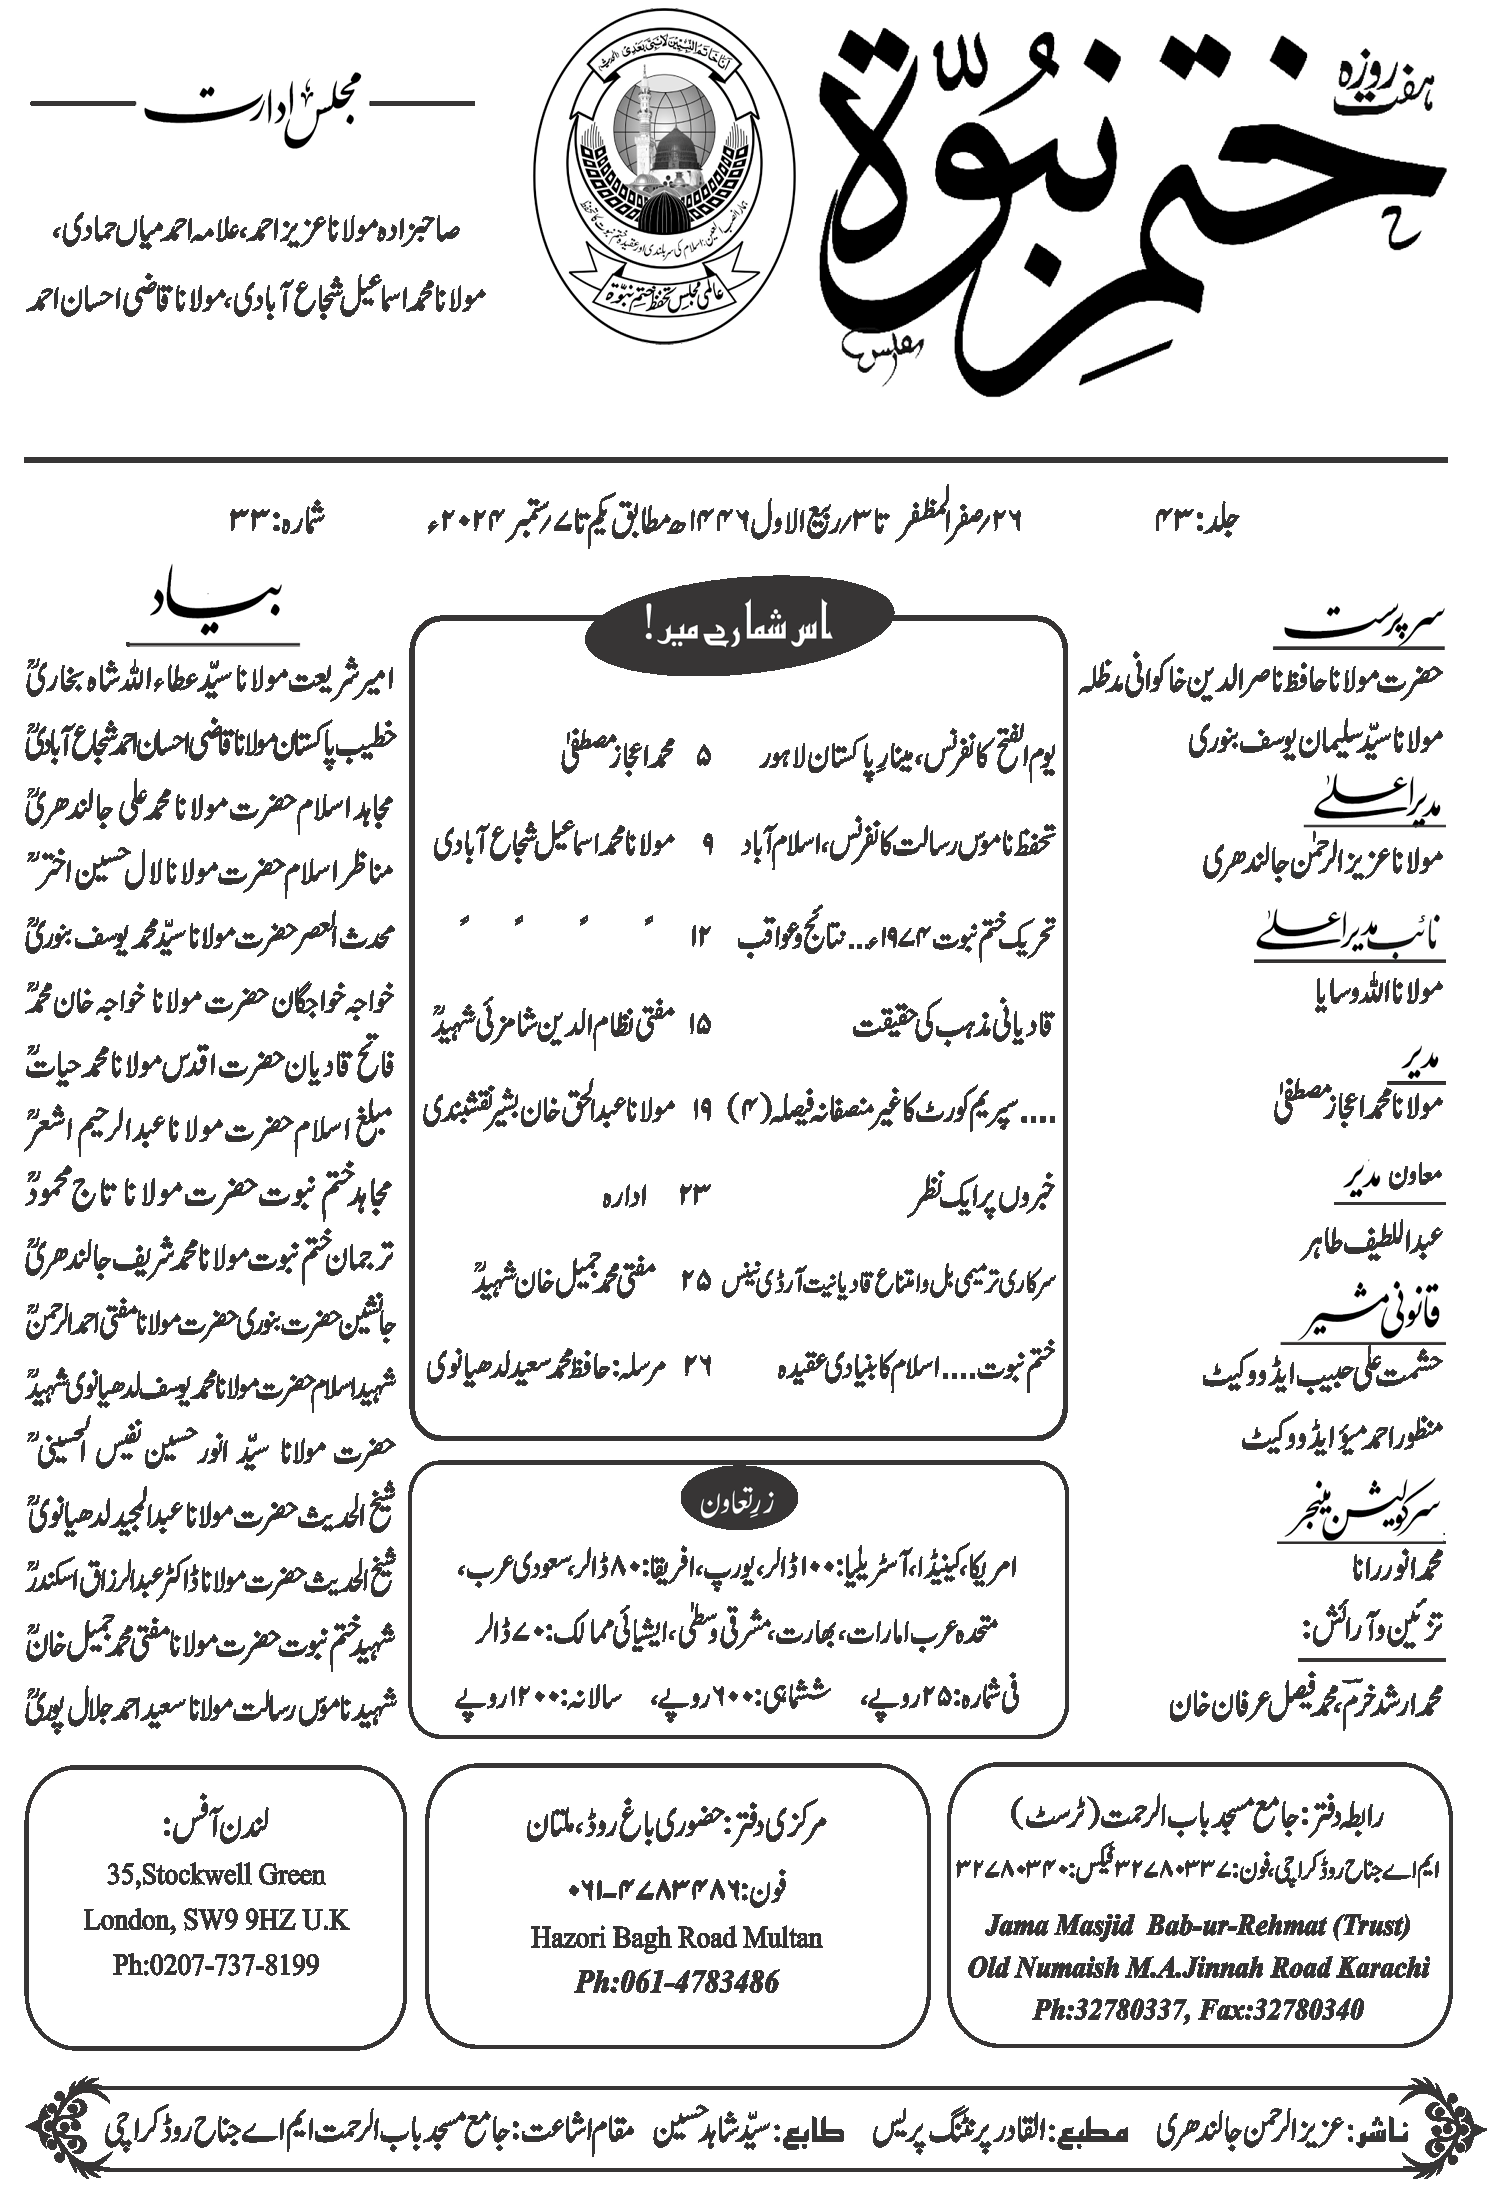 ہفت روزہ
ختم نبوّۃ
اَنَا خَاتَمُ النَّبِیِّیْنَ لَا نَبِیَّ بَعْدِیْ
عالمی مجلس تحفظ ختم نبوّۃ
مجلس ادارت
صاحبزادہ مولانا عزیز احمد، علامہ احمد میاں حمادی،
مولانا محمد اسماعیل شجاع آبادی، مولانا قاضی احسان احمد
جلد: ۴۳ ۲۶؍صفر المظفر تا ۳؍ربیع الاول ۱۴۴۶ھ مطابق یکم تا ۷؍ستمبر ۲۰۲۴ء شمارہ: ۳۳
سرپرست
حضرت مولانا حافظ ناصر الدین خاکوانی مدظلہ
مولانا سیّد سلیمان یوسف بنوری
مدیر اعلیٰ
مولانا عزیز الرحمٰن جالندھری
نائب مدیر اعلیٰ
مولانا اللہ وسایا
مدیر
مولانا محمد اعجاز مصطفیٰ
معاون مدیر
عبداللطیف طاہر
قانونی مشیر
حشمت علی حبیب ایڈووکیٹ
منظور احمد میؤ ایڈووکیٹ
سرکولیشن مینجر
محمد انور رانا
تزئین و آرائش:
محمد ارشد خرم، محمد فیصل عرفان خان
اس شمارے میں!
یوم الفتح کانفرنس، مینارِ پاکستان لاہور ۵ محمد اعجاز مصطفیٰ
تحفظ ناموس رسالت کانفرنس، اسلام آباد ۹ مولانا محمد اسماعیل شجاع آبادی
تحریک ختم نبوت ۱۹۷۴ء... نتائج و عواقب ۱۲ ؍؍ ؍؍ ؍؍ ؍؍
قادیانی مذہب کی حقیقت ۱۵ مفتی نظام الدین شامزئی شہیدؒ
.... سپریم کورٹ کا غیر منصفانہ فیصلہ (۴) ۱۹ مولانا عبدالحق خان بشیر نقشبندی
خبروں پر ایک نظر ۲۳ ادارہ
سرکاری ترمیمی بل و امتناع قادیانیت آرڈی نینس ۲۵ مفتی محمد جمیل خان شہیدؒ
ختم نبوت.... اسلام کا بنیادی عقیدہ ۲۶ مرسلہ: حافظ محمد سعید لدھیانوی
زرِتعاون
امریکا، کینیڈا، آسٹریلیا: ۱۰۰ ڈالر، یورپ، افریقا: ۸۰ ڈالر، سعودی عرب،
متحدہ عرب امارات، بھارت، مشرقی وسطیٰ، ایشیائی ممالک: ۷۰ ڈالر
فی شمارہ: ۲۵ روپے، ششماہی: ۶۰۰ روپے، سالانہ: ۱۲۰۰ روپے
بیاد
امیر شریعت مولانا سیّد عطاء اللہ شاہ بخاریؒ
خطیب پاکستان مولانا قاضی احسان احمد شجاع آبادیؒ
مجاہد اسلام حضرت مولانا محمد علی جالندھریؒ
مناظر اسلام حضرت مولانا لال حسین اخترؒ
محدث العصر حضرت مولانا سیّد محمد یوسف بنوریؒ
خواجہ خواجگان حضرت مولانا خواجہ خان محمدؒ
فاتح قادیان حضرت اقدس مولانا محمد حیاتؒ
مبلغ اسلام حضرت مولانا عبدالرحیم اشعرؒ
مجاہد ختم نبوت حضرت مولانا تاج محمودؒ
ترجمان ختم نبوت مولانا محمد شریف جالندھریؒ
جانشین حضرت بنوری حضرت مولانا مفتی احمد الرحمنؒ
شہید اسلام حضرت مولانا محمد یوسف لدھیانوی شہیدؒ
حضرت مولانا سیّد انور حسین نفیس الحسینیؒ
شیخ الحدیث حضرت مولانا عبدالمجید لدھیانویؒ
شیخ الحدیث حضرت مولانا ڈاکٹر عبدالرزاق اسکندرؒ
شہید ختم نبوت حضرت مولانا مفتی محمد جمیل خانؒ
شہید ناموس رسالت مولانا سعید احمد جلال پوریؒ
رابطہ دفتر: جامع مسجد باب الرحمت (ٹرسٹ)
ایم اے جناح روڈ کراچی، فون: ۳۲۷۸۰۳۳۷ فیکس: ۳۲۷۸۰۳۴۰
Jama Masjid Bab-ur-Rehmat (Trust)
Old Numaish M.A.Jinnah Road Karachi
Ph:32780337, Fax:32780340
مرکزی دفتر: حضوری باغ روڈ، ملتان
فون: ۰۶۱-۴۷۸۳۴۸۶
Hazori Bagh Road Multan
Ph:061-4783486
لندن آفس:
35,Stockwell Green
London, SW9 9HZ U.K
Ph:0207-737-8199
ناشر: عزیز الرحمن جالندھری مطبع: القادر پرنٹنگ پریس طابع: سیّد شاہد حسین مقام اشاعت: جامع مسجد باب الرحمت ایم اے جناح روڈ کراچی